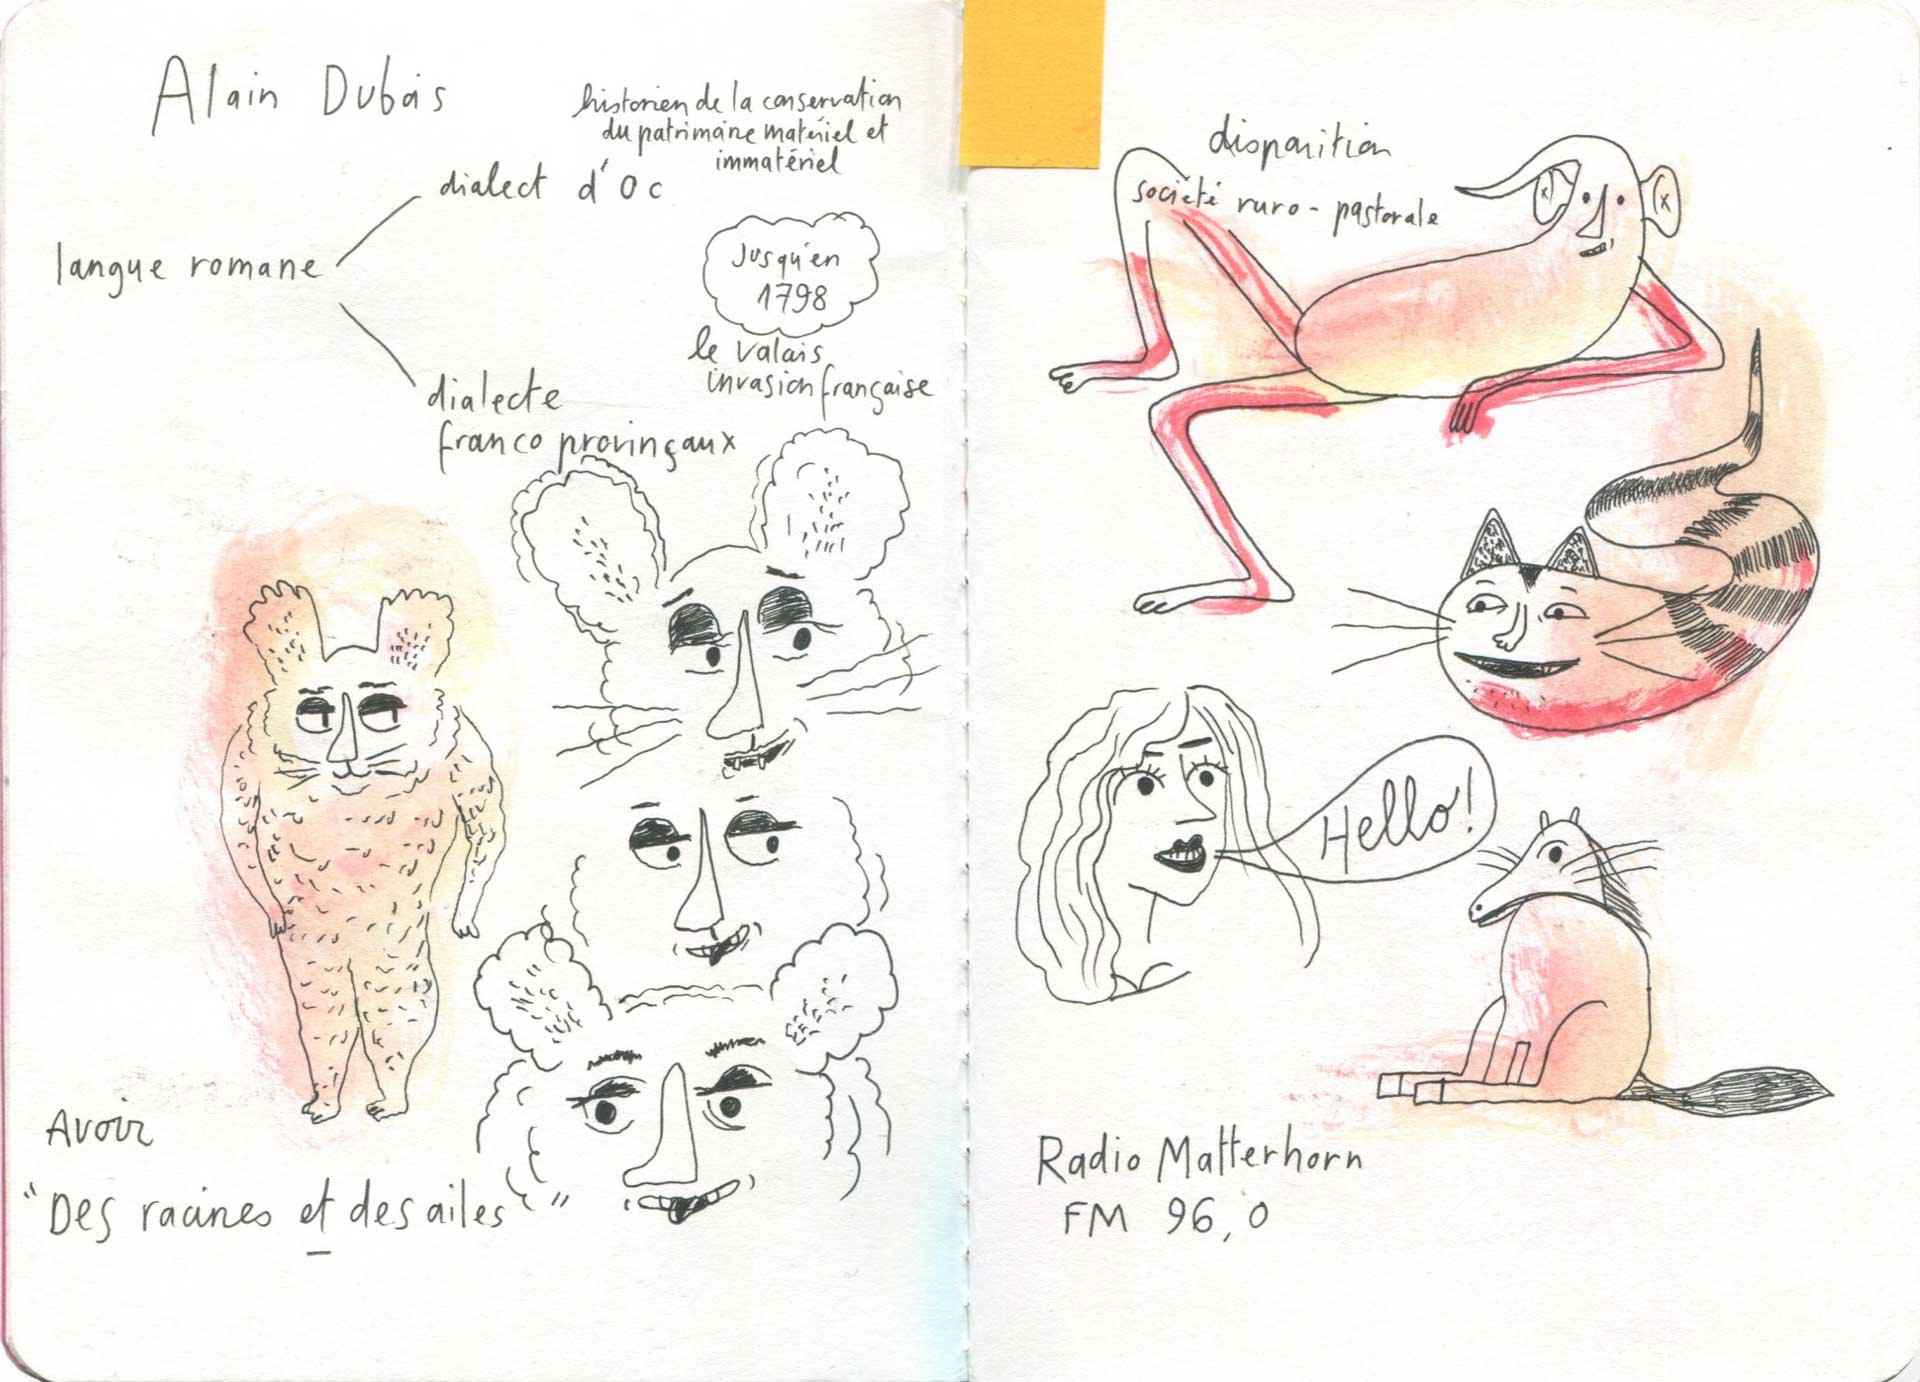 Alain Dubois
historien de la conservation
du patrimoine matériel et
immatériel
dialect d'Oc
langue romane
Jusqu'en
1798
le valais
invasion française
dialecte
franco provinçaux
Avoir
"Des racines et des ailes"
disparition
société ruro-pastorale
Hello!
Radio Matterhorn
FM 96,0